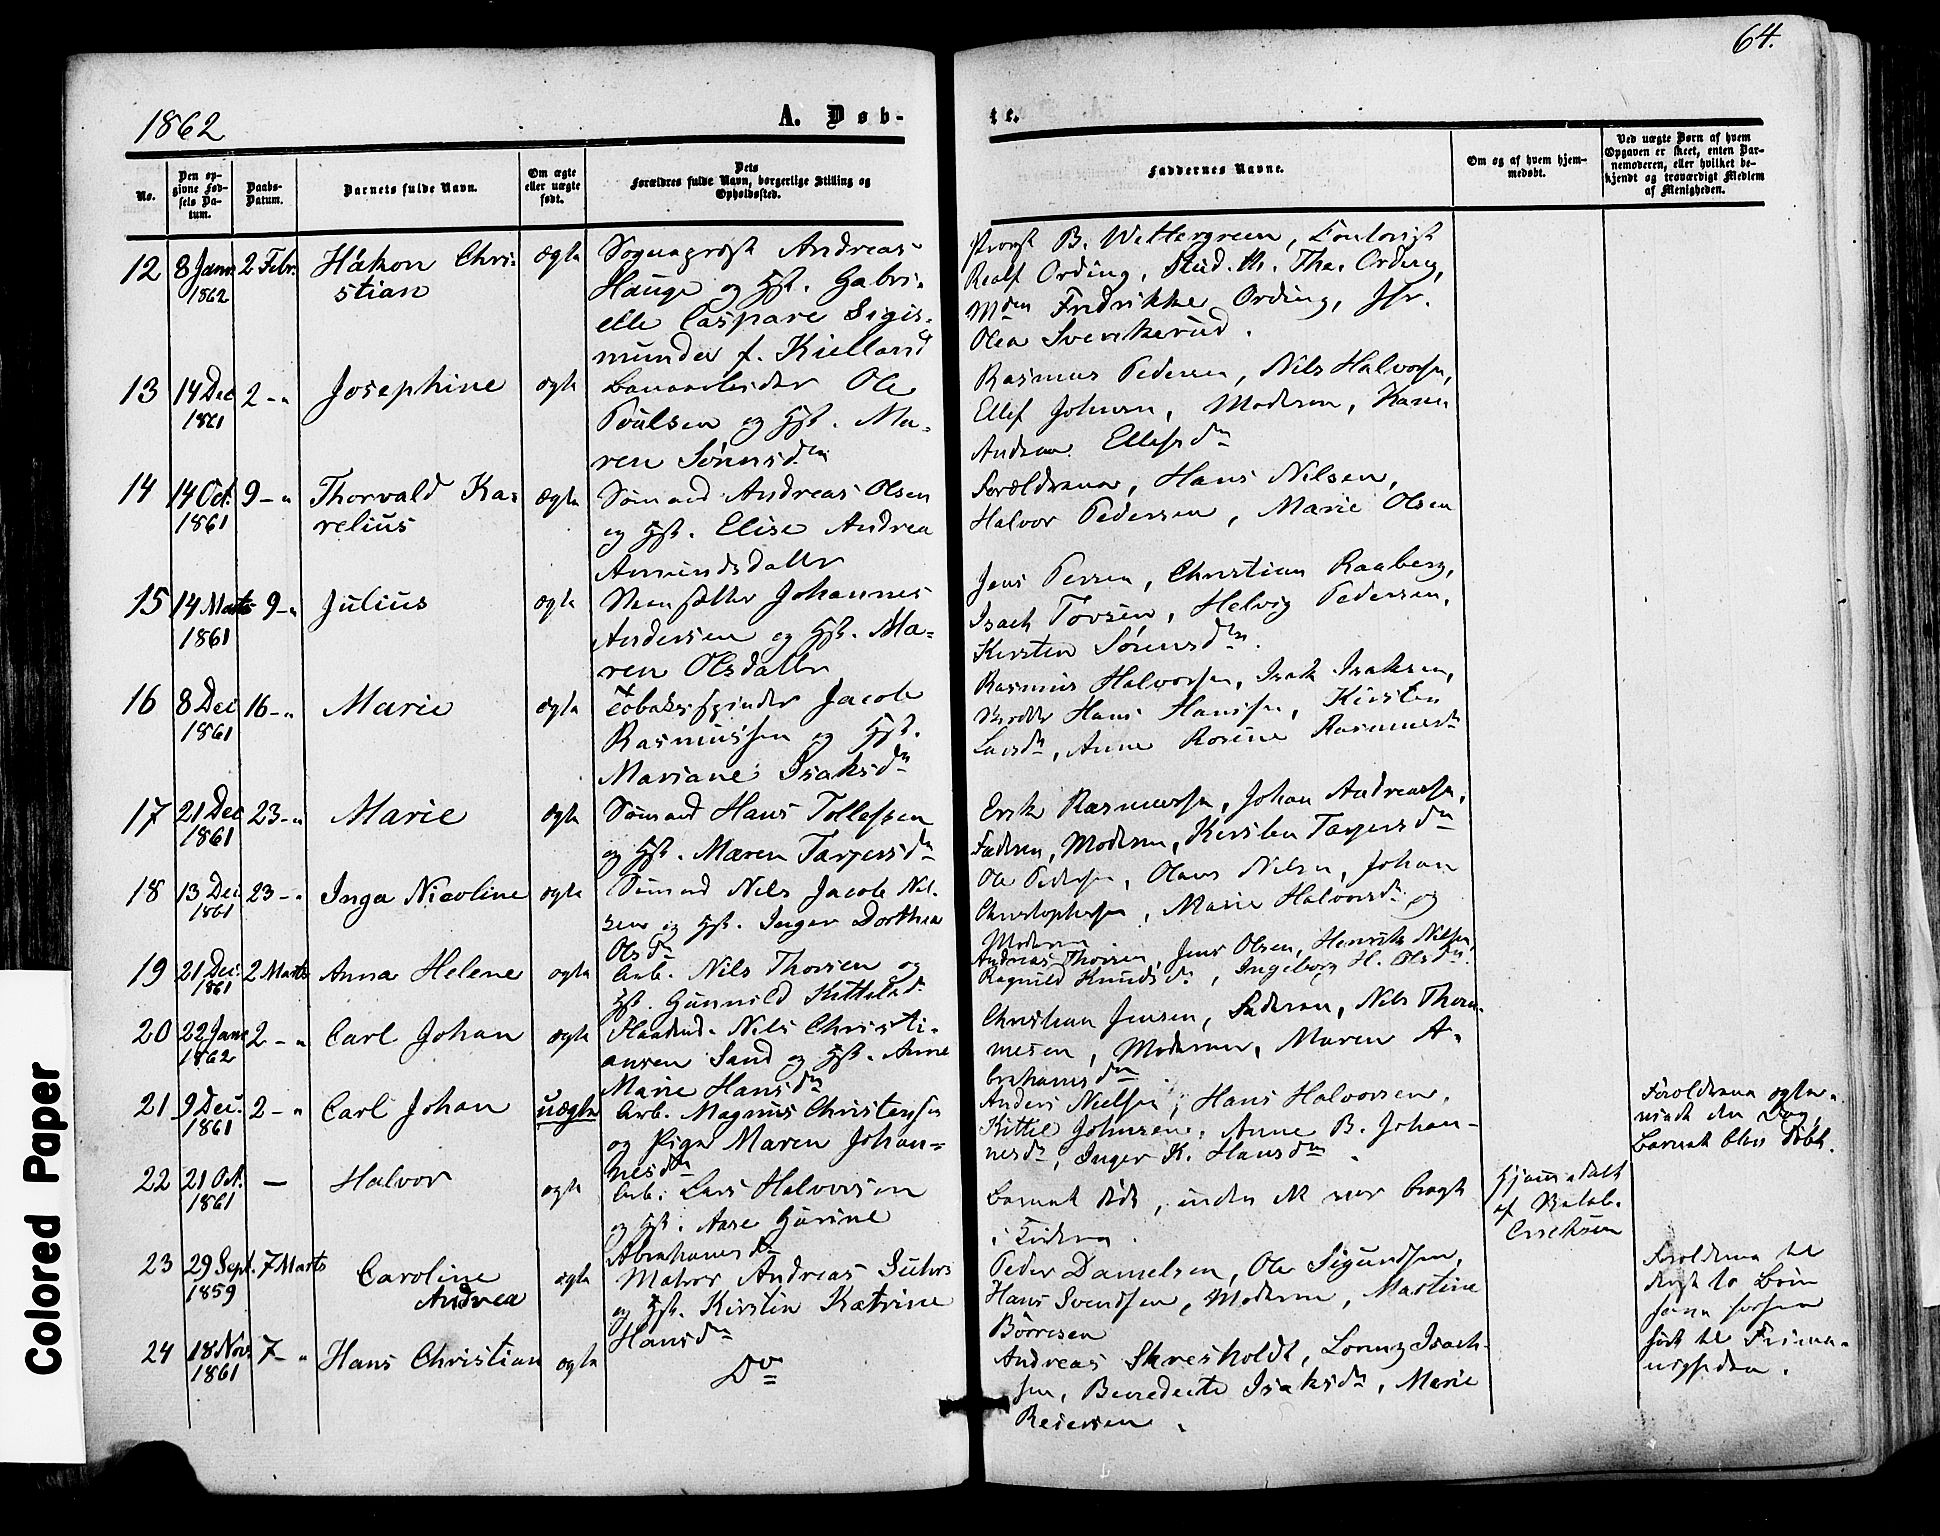 64.
1862
A. Døb-
te.
No.
Den op-
givne Fød-
sels Da-
tum.
Daabs-
Datum.
Barnets fulde Navn.
Om ægte
eller uægte
født.
Dets
Forældres fulde Navn, borgerlige Stilling og
Opholdssted.
Faddernes Navne.
Om og af hvem hjem-
medøbt.
Ved uægte Børn af hvem
Opgaven er skeet, enten Bar-
nemoderen, eller hvilket be-
kjendt og troværdigt Medlem
af Menigheden.
12 8 Janr 2 Febr. Håkon Chri- ægte Sogneprest Andreas
1862 stian Hauge og Hst. Gabri-
elle Caspare Sigis-
munda f. Kielland
Provst B. Wettergreen,
Realf Ording, Stud. th. Ths. Ording,
Mden Fredrikke Ording, Jfr.
Olea Sverikerud.
13 14 Dec 2 -" Josephine ægte Banearbeider Ole
1861 Poulsen og Hst. Ma-
ren Sörnsdn
Rasmus Pedersen, Nils Halvorsen,
Ellef Johnsen, Moderen, Karen
Andrea Ellefsdn
14 14 Oct. 9 -" Thorvald Ka- ægte Sömand Andreas Olsen
1861 relius og Hst. Elise Andrea
Amundsdatter
Forældrene, Hans Nilsen,
Halvor Pedersen, Marie Olsen
15 14 Marts 9 -" Julius ægte Steensætter Johannes
1861 Andersen og Hst. Ma-
ren Olsdatter
Jens Persen, Christian Raaberg,
Isach Tovsen, Helvig Pedersen,
Kirsten Sörensdtr.
16 8 Dec 16 -" Marie ægte Tobaksspinder Jacob
1861 Rasmussen og Hst.
Mariane Isaksdn
Rasmus Halvorsen, Isak Isaksen,
Hans Hanssen, Kirsten
Larsdn, Anne Rosine Rasmusdn
17 21 Dec 23 -" Marie ægte Sömand Hans Tollefsen
1861 og Hst. Maren Tarjersdn
Erik Rasmussen, Johan Andreassen,
Faderen, Moderen, Kirsten Tarjersdn
18 13 Dec 23 -" Inga Nicoline ægte Sömand Nils Jacob Nil-
1861 sen og Hst. Inger Dorthea
Olsdn
Ole Pedersen, Olaus Nilsen, Johan
Christophersen, Marie Halvorsdn og
Moderen
19 21 Dec. 2 Marts Anna Helene ægte Arb. Nils Thorsen og
1861 Hst. Gunnild Kittilsd.
Andreas Thorsen, Jens Olsen, Henrik Nilsen,
Ragnild Knudsdn, Ingeborg H. Olsdn.
20 22 Janr 2 -" Carl Johan ægte Nils Christi-
1862 ansen Sand og Hst. Anne
Marie Hansdn
Christian Jensen, Faderen, Nils Thom-
mesen, Moderen, Maren A-
brahamsdn.
21 9 Dec. 2 -" Carl Johan uægte Arb. Magnus Christensen
1861 og Pige Maren Johan-
nesdn
Anders Nielsen, Hans Halvorsen,
Kittil Johnsen, Anne B. Johan-
nesdn, Inger K. Hansdn.
Forældrene ægte-
viede den Dag,
Barnet blev döbt.
22 21 Oct. — Halvor ægte Arb. Lars Halvorsen
1861 og Hst. Aase Gurine
Abrahamsdn
Barnet döde, inden det var bragt
i Kirken.
Hjemmedöbt
af
Erichsen
23 29 Sept. 7 Marts Caroline ægte Matros Andreas Suhrs
1859 Andrea og Hst. Kirstin Katrine
Hansdn
Peder Danielsen, Ole Sigundsen,
Hans Svendsen, Moderen, Martine
Börresen
Forældrene til
disse to Börn
24 18 Nov. 7 -" Hans Christian ægte Do
1861
Andreas Skresholdt, Lorenz Isach-
sen, Benedicte Isaksdn, Marie
Reiersen.
Colored Paper